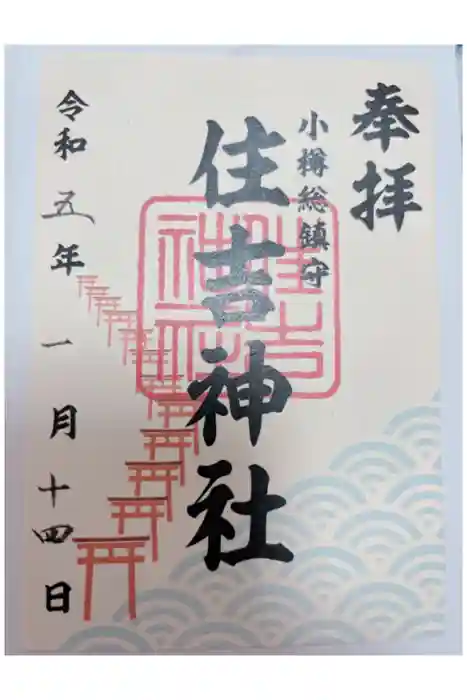 奉拝
小樽総鎮守
住吉神社
住吉
神社
令和五年一月十四日